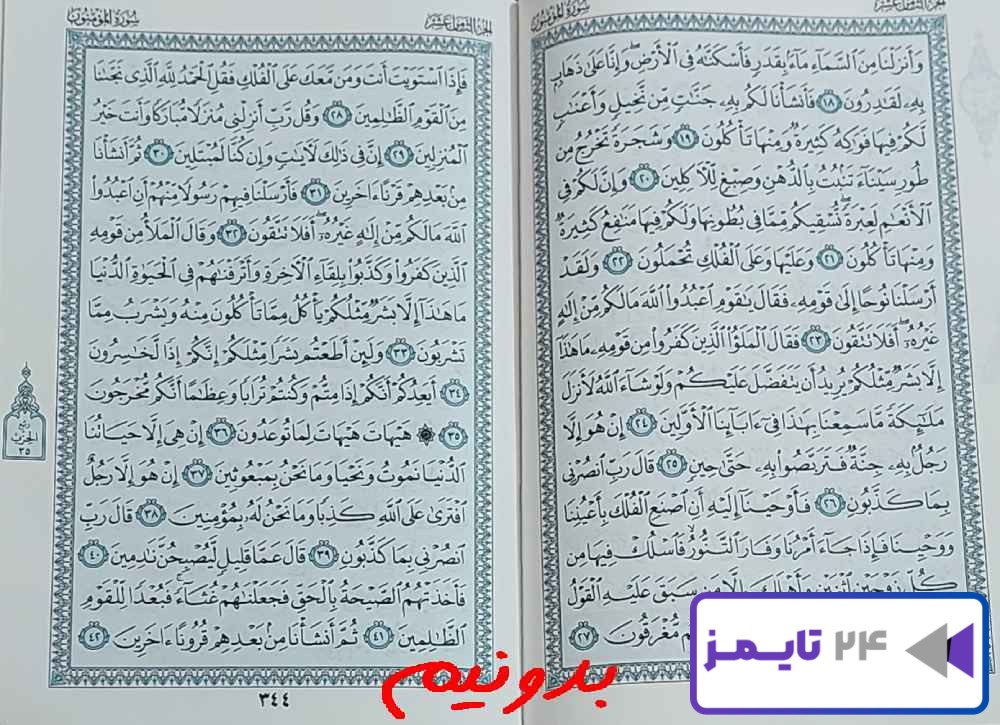 الجزء الثامن عشر
سورة المؤمنون
وَأَنزَلْنَا مِنَ السَّمَاءِ مَاءً بِقَدَرٍ فَأَسْكَنَّاهُ فِي الْأَرْضِ وَإِنَّا عَلَىٰ ذَهَابٍ
بِهِ لَقَادِرُونَ ١٨ فَأَنشَأْنَا لَكُم بِهِ جَنَّاتٍ مِّن نَّخِيلٍ وَأَعْنَابٍ
لَّكُمْ فِيهَا فَوَاكِهُ كَثِيرَةٌ وَمِنْهَا تَأْكُلُونَ ١٩ وَشَجَرَةً تَخْرُجُ مِن
طُورِ سَيْنَاءَ تَنبُتُ بِالدُّهْنِ وَصِبْغٍ لِّلْآكِلِينَ ٢٠ وَإِنَّ لَكُمْ فِي
الْأَنْعَامِ لَعِبْرَةً نُّسْقِيكُم مِّمَّا فِي بُطُونِهَا وَلَكُمْ فِيهَا مَنَافِعُ كَثِيرَةٌ
وَمِنْهَا تَأْكُلُونَ ٢١ وَعَلَيْهَا وَعَلَى الْفُلْكِ تُحْمَلُونَ ٢٢ وَلَقَدْ
أَرْسَلْنَا نُوحًا إِلَىٰ قَوْمِهِ فَقَالَ يَا قَوْمِ اعْبُدُوا اللَّهَ مَا لَكُم مِّنْ إِلَٰهٍ
غَيْرُهُ أَفَلَا تَتَّقُونَ ٢٣ فَقَالَ الْمَلَأُ الَّذِينَ كَفَرُوا مِن قَوْمِهِ مَا هَٰذَا
إِلَّا بَشَرٌ مِّثْلُكُمْ يُرِيدُ أَن يَتَفَضَّلَ عَلَيْكُمْ وَلَوْ شَاءَ اللَّهُ لَأَنزَلَ
مَلَائِكَةً مَّا سَمِعْنَا بِهَٰذَا فِي آبَائِنَا الْأَوَّلِينَ ٢٤ إِنْ هُوَ إِلَّا
رَجُلٌ بِهِ جِنَّةٌ فَتَرَبَّصُوا بِهِ حَتَّىٰ حِينٍ ٢٥ قَالَ رَبِّ انصُرْنِي
بِمَا كَذَّبُونِ ٢٦ فَأَوْحَيْنَا إِلَيْهِ أَنِ اصْنَعِ الْفُلْكَ بِأَعْيُنِنَا
وَوَحْيِنَا فَإِذَا جَاءَ أَمْرُنَا وَفَارَ التَّنُّورُ فَاسْلُكْ فِيهَا مِن
كُلٍّ زَوْجَيْنِ اثْنَيْنِ وَأَهْلَكَ إِلَّا مَن سَبَقَ عَلَيْهِ الْقَوْلُ
مُّغْرَقُونَ ٢٧
سورة المؤمنون
الجزء الثامن عشر
فَإِذَا اسْتَوَيْتَ أَنتَ وَمَن مَّعَكَ عَلَى الْفُلْكِ فَقُلِ الْحَمْدُ لِلَّهِ الَّذِي نَجَّانَا
مِنَ الْقَوْمِ الظَّالِمِينَ ٢٨ وَقُل رَّبِّ أَنزِلْنِي مُنزَلًا مُّبَارَكًا وَأَنتَ خَيْرُ
الْمُنزِلِينَ ٢٩ إِنَّ فِي ذَٰلِكَ لَآيَاتٍ وَإِن كُنَّا لَمُبْتَلِينَ ٣٠ ثُمَّ أَنشَأْنَا
مِن بَعْدِهِمْ قَرْنًا آخَرِينَ ٣١ فَأَرْسَلْنَا فِيهِمْ رَسُولًا مِّنْهُمْ أَنِ اعْبُدُوا
اللَّهَ مَا لَكُم مِّنْ إِلَٰهٍ غَيْرُهُ أَفَلَا تَتَّقُونَ ٣٢ وَقَالَ الْمَلَأُ مِن قَوْمِهِ
الَّذِينَ كَفَرُوا وَكَذَّبُوا بِلِقَاءِ الْآخِرَةِ وَأَتْرَفْنَاهُمْ فِي الْحَيَاةِ الدُّنْيَا
مَا هَٰذَا إِلَّا بَشَرٌ مِّثْلُكُمْ يَأْكُلُ مِمَّا تَأْكُلُونَ مِنْهُ وَيَشْرَبُ مِمَّا
تَشْرَبُونَ ٣٣ وَلَئِنْ أَطَعْتُم بَشَرًا مِّثْلَكُمْ إِنَّكُمْ إِذًا لَّخَاسِرُونَ
٣٤ أَيَعِدُكُمْ أَنَّكُمْ إِذَا مِتُّمْ وَكُنتُمْ تُرَابًا وَعِظَامًا أَنَّكُم مُّخْرَجُونَ
٣٥ ۞ هَيْهَاتَ هَيْهَاتَ لِمَا تُوعَدُونَ ٣٦ إِنْ هِيَ إِلَّا حَيَاتُنَا
الدُّنْيَا نَمُوتُ وَنَحْيَا وَمَا نَحْنُ بِمَبْعُوثِينَ ٣٧ إِنْ هُوَ إِلَّا رَجُلٌ
افْتَرَىٰ عَلَى اللَّهِ كَذِبًا وَمَا نَحْنُ لَهُ بِمُؤْمِنِينَ ٣٨ قَالَ رَبِّ
انصُرْنِي بِمَا كَذَّبُونِ ٣٩ قَالَ عَمَّا قَلِيلٍ لَّيُصْبِحُنَّ نَادِمِينَ ٤٠
فَأَخَذَتْهُمُ الصَّيْحَةُ بِالْحَقِّ فَجَعَلْنَاهُمْ غُثَاءً فَبُعْدًا لِّلْقَوْمِ
الظَّالِمِينَ ٤١ ثُمَّ أَنشَأْنَا مِن بَعْدِهِمْ قُرُونًا آخَرِينَ ٤٢
ربع
الحزب
٣٥
٣٤٤
بدونیم
۲۴ تایمز